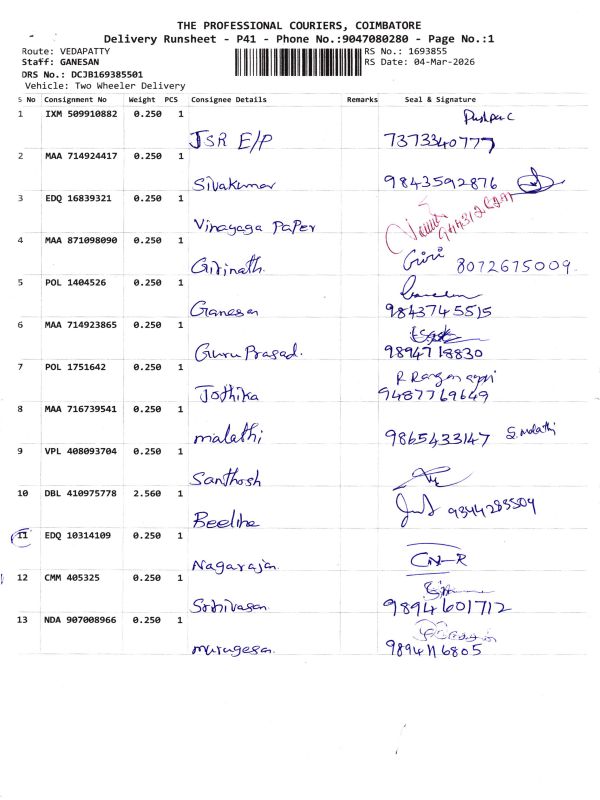 THE PROFESSIONAL COURIERS, COIMBATORE
Delivery Runsheet - P41 - Phone No.:9047080280 - Page No.:1
Route: VEDAPATTY
RS No.: 1693855
Staff: GANESAN
RS Date: 04-Mar-2026
DRS No.: DCJB169385501
Vehicle: Two Wheeler Delivery
S No Consignment No Weight PCS Consignee Details Remarks Seal & Signature
1 IXM 509910882 0.250 1
JSR E/P 7373340777
2 MAA 714924417 0.250 1
Sivakumar 9843592876
3 EDQ 16839321 0.250 1
Vinayaga PaPer
4 MAA 871098090 0.250 1
Girinath Giri 8072675009
5 POL 1404526 0.250 1
Ganesan 9843745515
6 MAA 714923865 0.250 1
Guru Prasad. 9894718830
7 POL 1751642 0.250 1
Jothika 9487769649
8 MAA 716739541 0.250 1
malathi 9865433147 S. malathi
9 VPL 408093704 0.250 1
Santhosh
10 DBL 410975778 2.560 1
Beeline 9344283509
11 EDQ 10314109 0.250 1
Nagarajan CN-R
12 CMM 405325 0.250 1
Srinivasan 9894601712
13 NDA 907008966 0.250 1
murugesan 9894116805